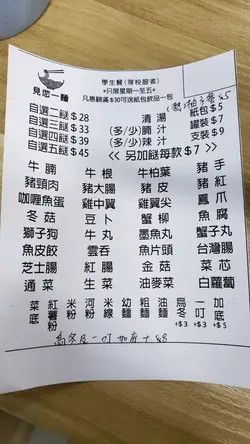 見您一麵
學生餐(穿校服者)
*只限星期一至五*
凡惠顧滿$30可送紙包飲品一包
自選二餸$28
自選三餸$33
自選四餸$39
自選五餸$45
清湯
(多/少)腩汁
(多/少)辣汁
<< 另加餸每款$7 >>
紙包$5
罐裝$7
支裝$9
牛腩 牛根 牛柏葉 豬手
豬頸肉 豬大腸 豬皮 豬紅
咖喱魚蛋 雞中翼 雞翼尖 鳳爪
冬菇 豆卜 蟹柳 魚腐
獅子狗 牛丸 墨魚丸 蟹子丸
魚皮餃 雲吞 魚片頭 台灣腸
芝士腸 紅腸 金菇 菜芯
通菜 生菜 油麥菜 白蘿蔔
菜底 紅薯粉 米粉 河粉 米線 幼麵 粗麵 油麵 烏冬+$3 一叮+$3 加底+$5